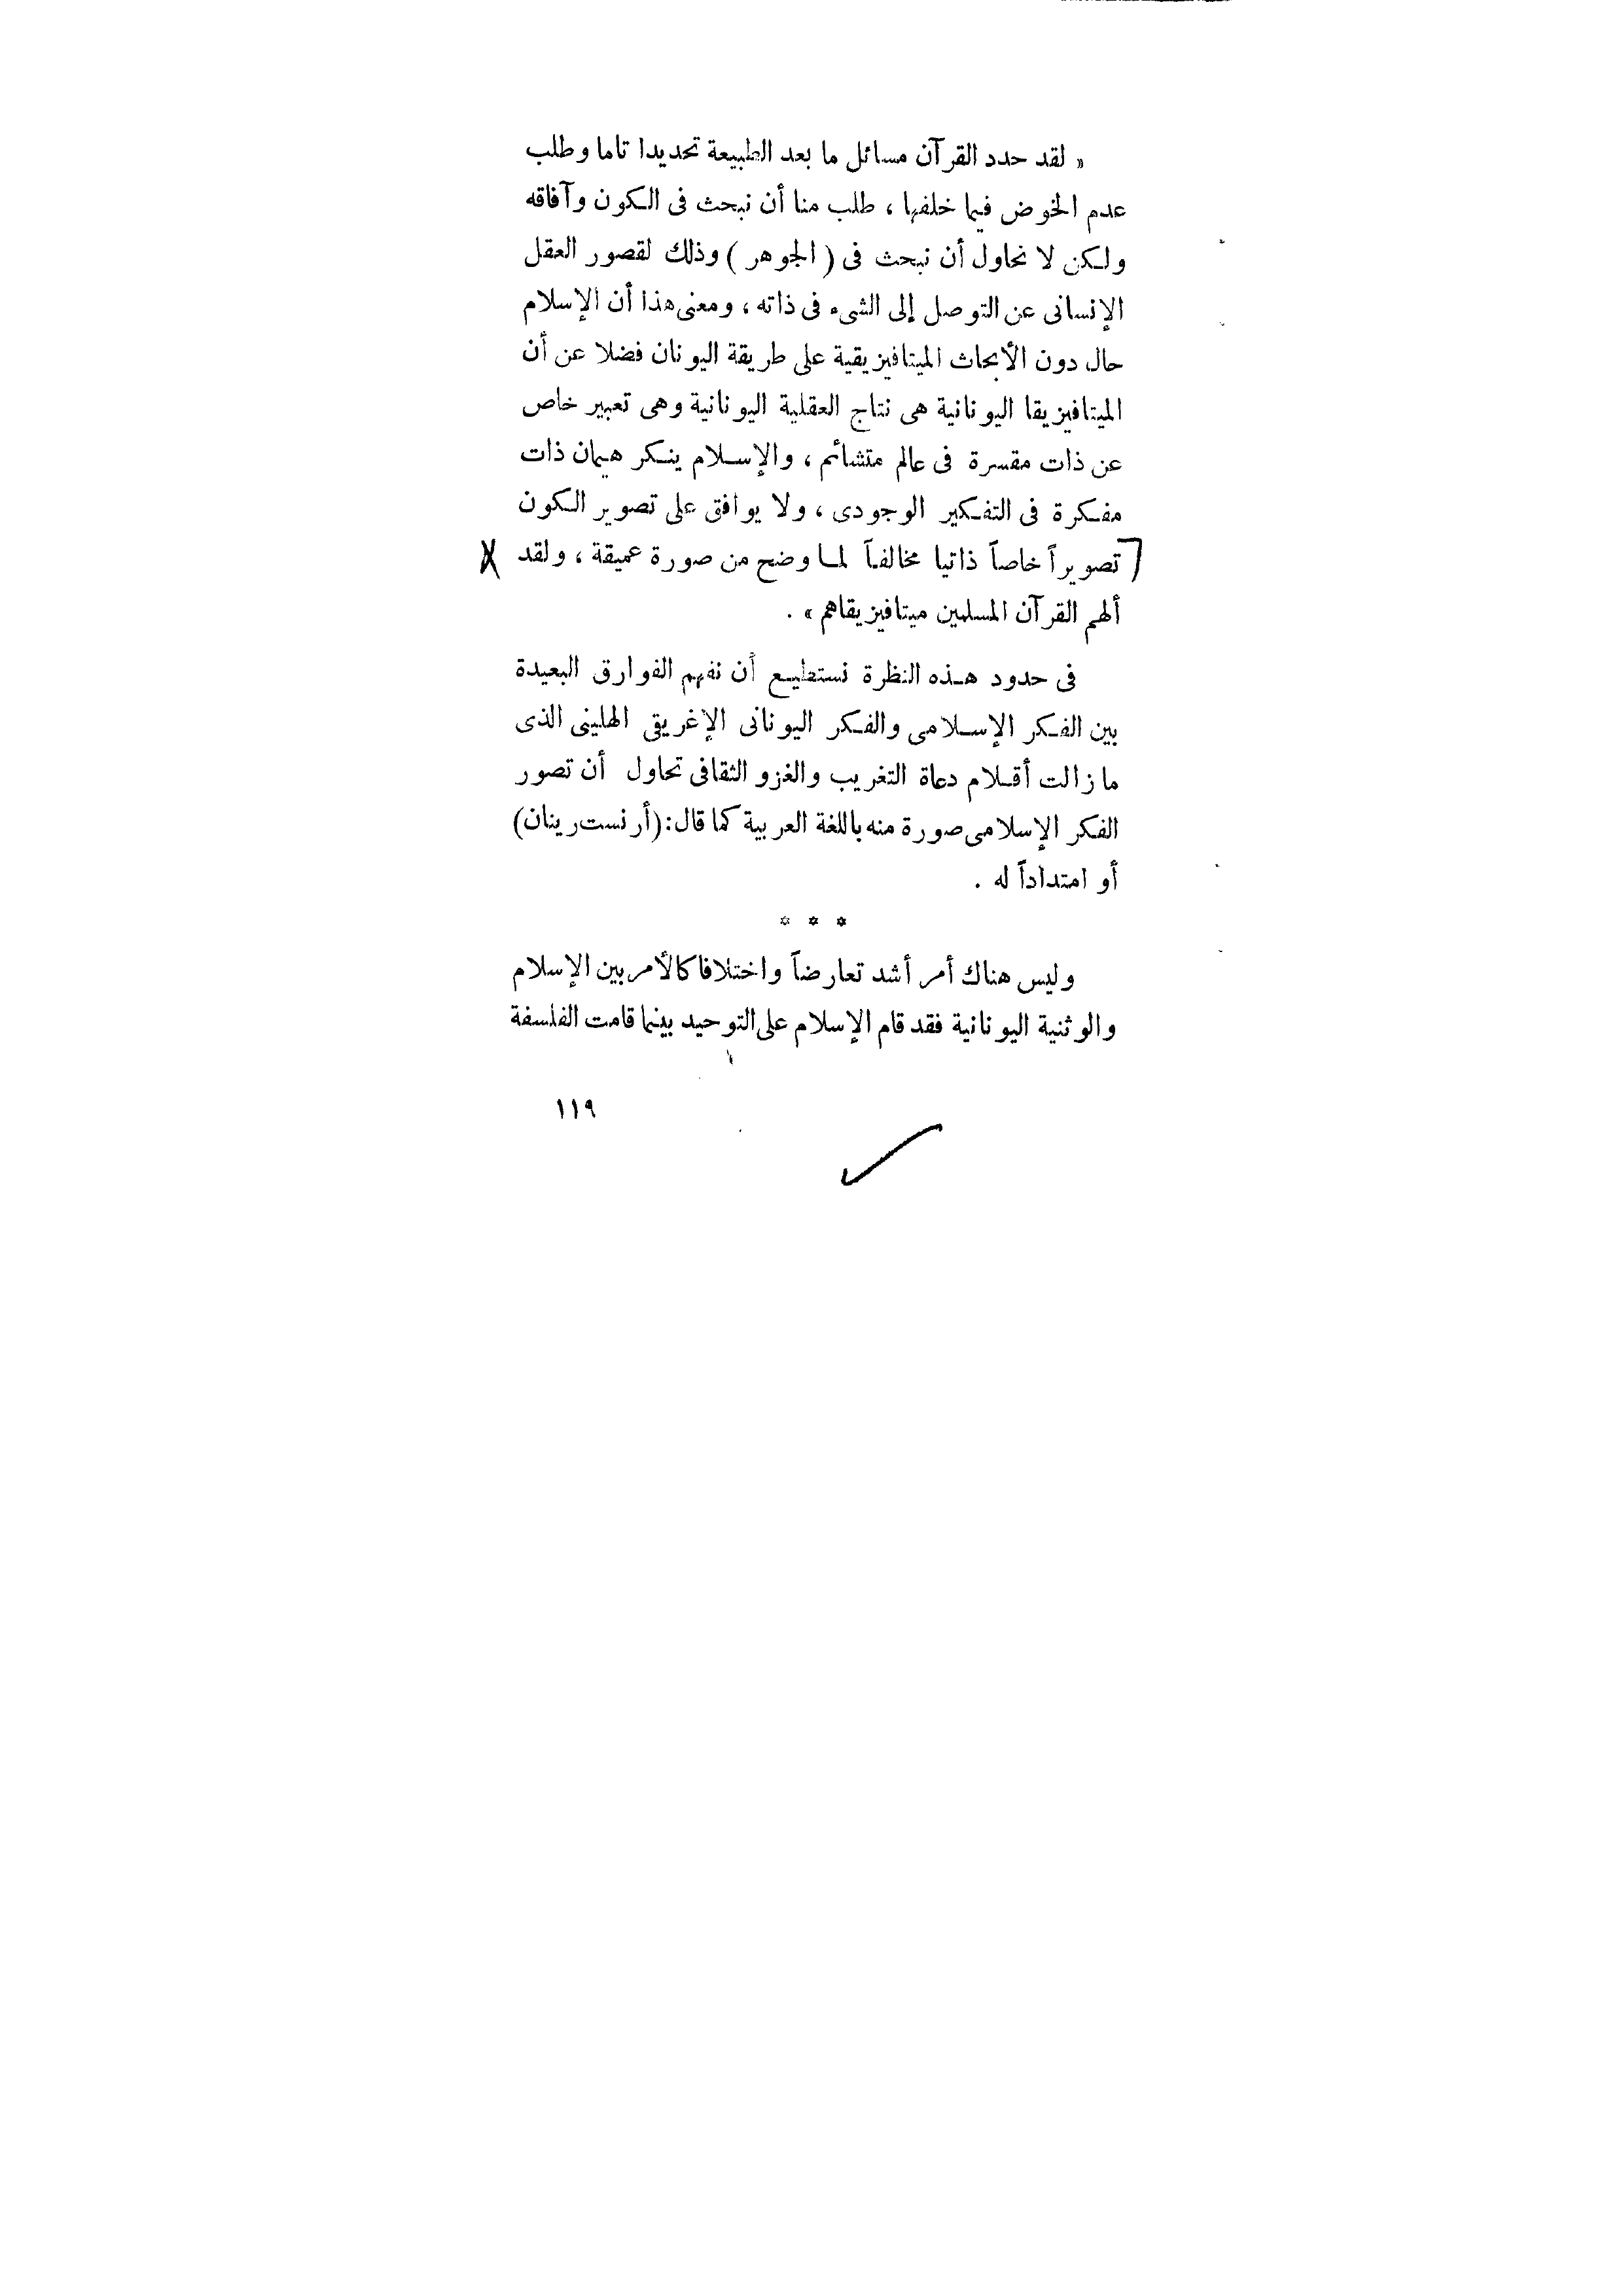 « لقد حدد القرآن مسائل ما بعد الطبيعة تحديدا تاما وطلب
عدم الخوض فيما خلفها ، طلب منا أن نبحث فى الكون وآفاقه
ولكن لا نحاول أن نبحث فى ( الجوهر ) وذلك لقصور العقل
الإنسانى عن التوصل إلى الشىء فى ذاته ، ومعنى هذا أن الإسلام
حال دون الأبحاث الميتافيزيقية على طريقة اليونان فضلا عن أن
الميتافيزيقا اليونانية هى نتاج العقلية اليونانية وهى تعبير خاص
عن ذات مقسرة فى عالم متشائم ، والإسلام ينكر هيمان ذات
مفكرة فى التفكير الوجودى ، ولا يوافق على تصوير الكون
تصويراً خاصاً ذاتيا مخالفاً لما وضح من صورة عميقة ، ولقد
ألهم القرآن المسلمين ميتافيزيقاهم » .
فى حدود هذه النظرة نستطيع أن نفهم الفوارق البعيدة
بين الفكر الإسلامى والفكر اليونانى الإغريقى الهلينى الذى
ما زالت أقلام دعاة التغريب والغزو الثقافى تحاول أن تصور
الفكر الإسلامى صورة منه باللغة العربية كما قال : (أرنست رينان)
أو امتداداً له .
* * *
وليس هناك أمر أشد تعارضاً واختلافا كالأمر بين الإسلام
والوثنية اليونانية فقد قام الإسلام على التوحيد بينما قامت الفلسفة
١١٩